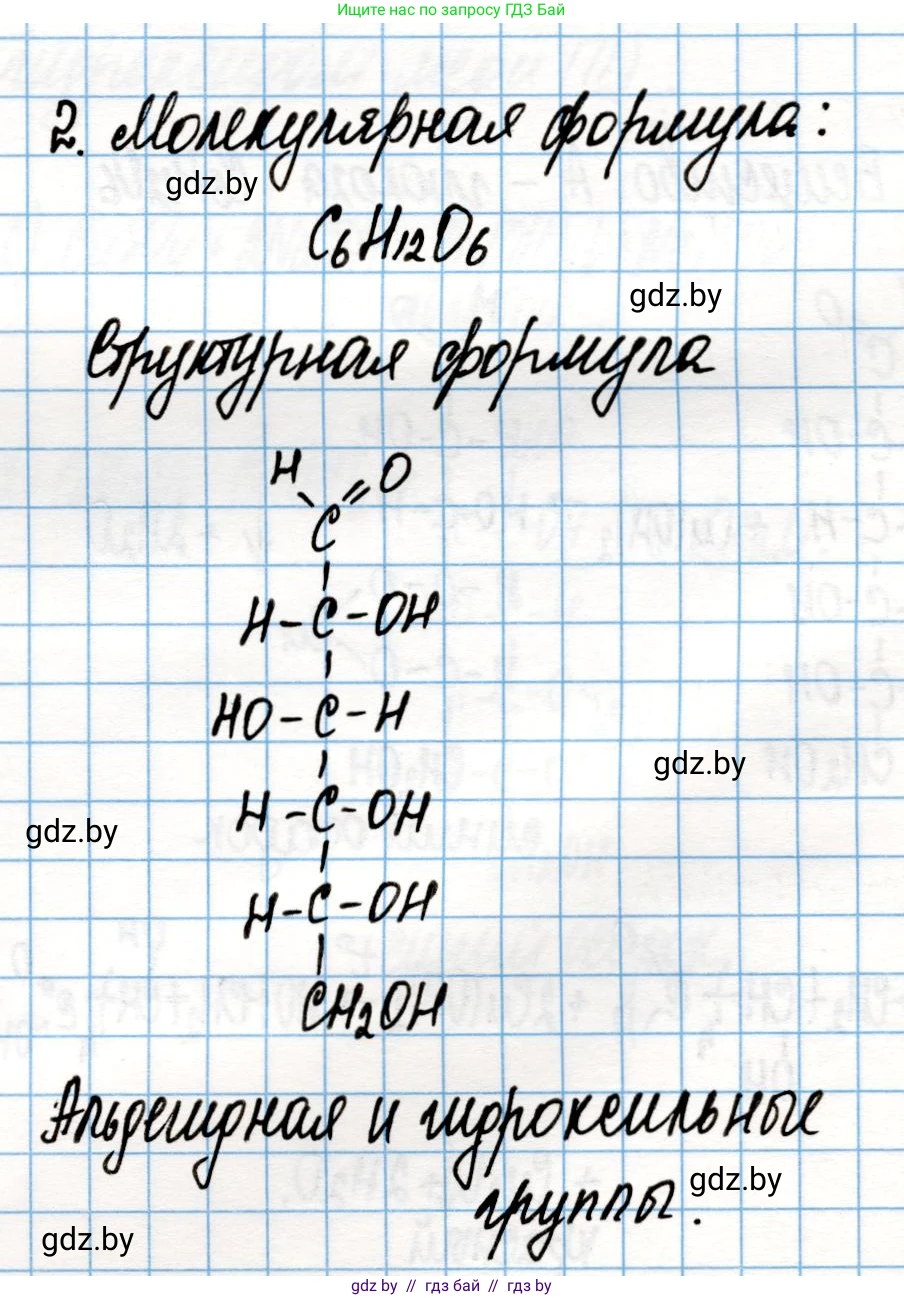 Ищите нас по запросу ГДЗ Бай
2. Молекулярная формула:
gdz.by
C6H12O6
gdz.by
Структурная формула
H O
C
H-C-OH
HO-C-H
gdz.by
H-C-OH
gdz.by
H-C-OH
CH2OH
Альдегидная и гидроксильные
группы.
gdz.by
gdz.by
gdz.by // гдз бай // гдз by